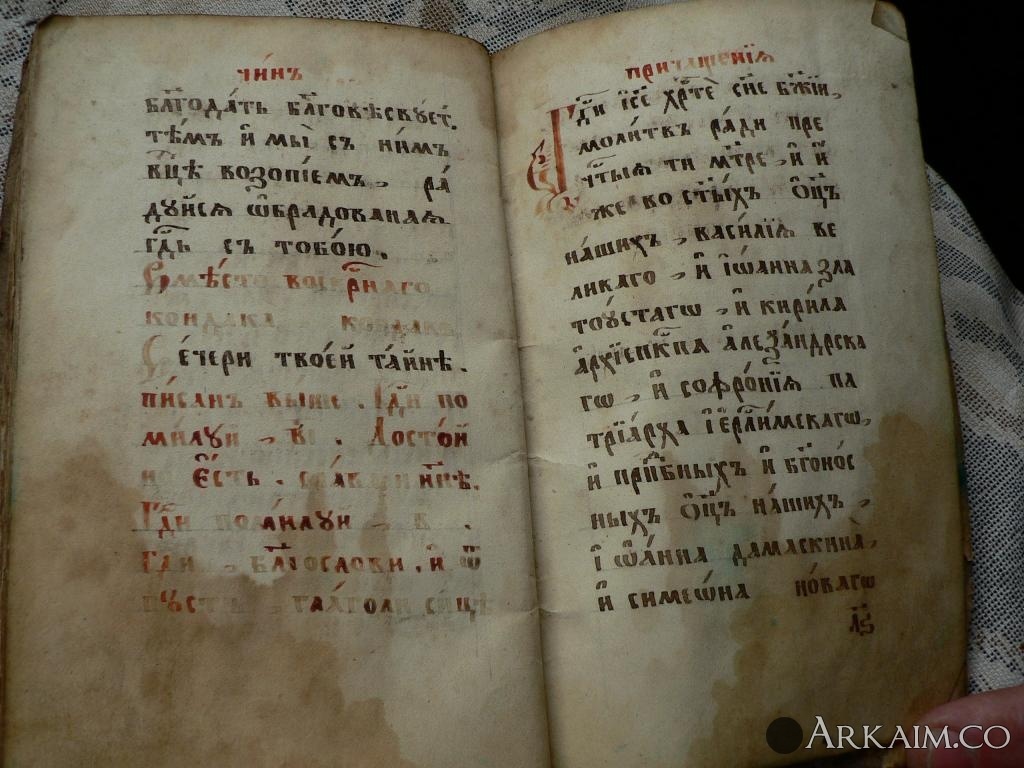 чи́нъ
бл҃года́ть бл҃говѣсвуєт.
тѣ́мъ и҆ мы̀ съ ни́мъ
бц҃ѣ возопїе́мъ, ра́
дꙋйсѧ ѡ҆брадованаѧ
гд҃ь съ тобо́ю.
Вмѣ́сто воскр҃наго
кондака кондакъ
Вечери твое́й та́йнѣ.
пи́санъ вы́ше. Гд҃и по
ми́лꙋй, в҃і. Досто́й
и є҆́сть. сла́ва и ны́нѣ.
Гд҃и поми́лꙋй, в.
Гд҃и, бл҃гослови. и҆ ѿ
пꙋстъ, глаголи си́це
причаще́нїѧ
Гд҃и і҆с҃е хр҃те сн҃е бж҃їй,
моли́твъ ра́ди пре
чт҃ыѧ ти мт҃ре, и҆ и҆
же во ст҃ы́хъ ѻ҆ц҃ъ
на́шихъ, васи́лїѧ ве
ликаго, и҆ і҆ѡа́нна зла
тоꙋ́стагѡ, и҆ кирі́ла
а҆рхїеп҃кпа а҆леѯа́ндрска
гѡ, и҆ софро́нїѧ па
трїа́рха і҆ер҃ли́мскагѡ,
и҆ прп҃бныхъ и҆ бг҃оно́с
ныхъ ѻ҆ц҃ъ на́шихъ,
і҆ѡа́нна дамаскина,
и҆ симеѡ́на но́вагѡ
лѕ҃
ARKAIM.CO